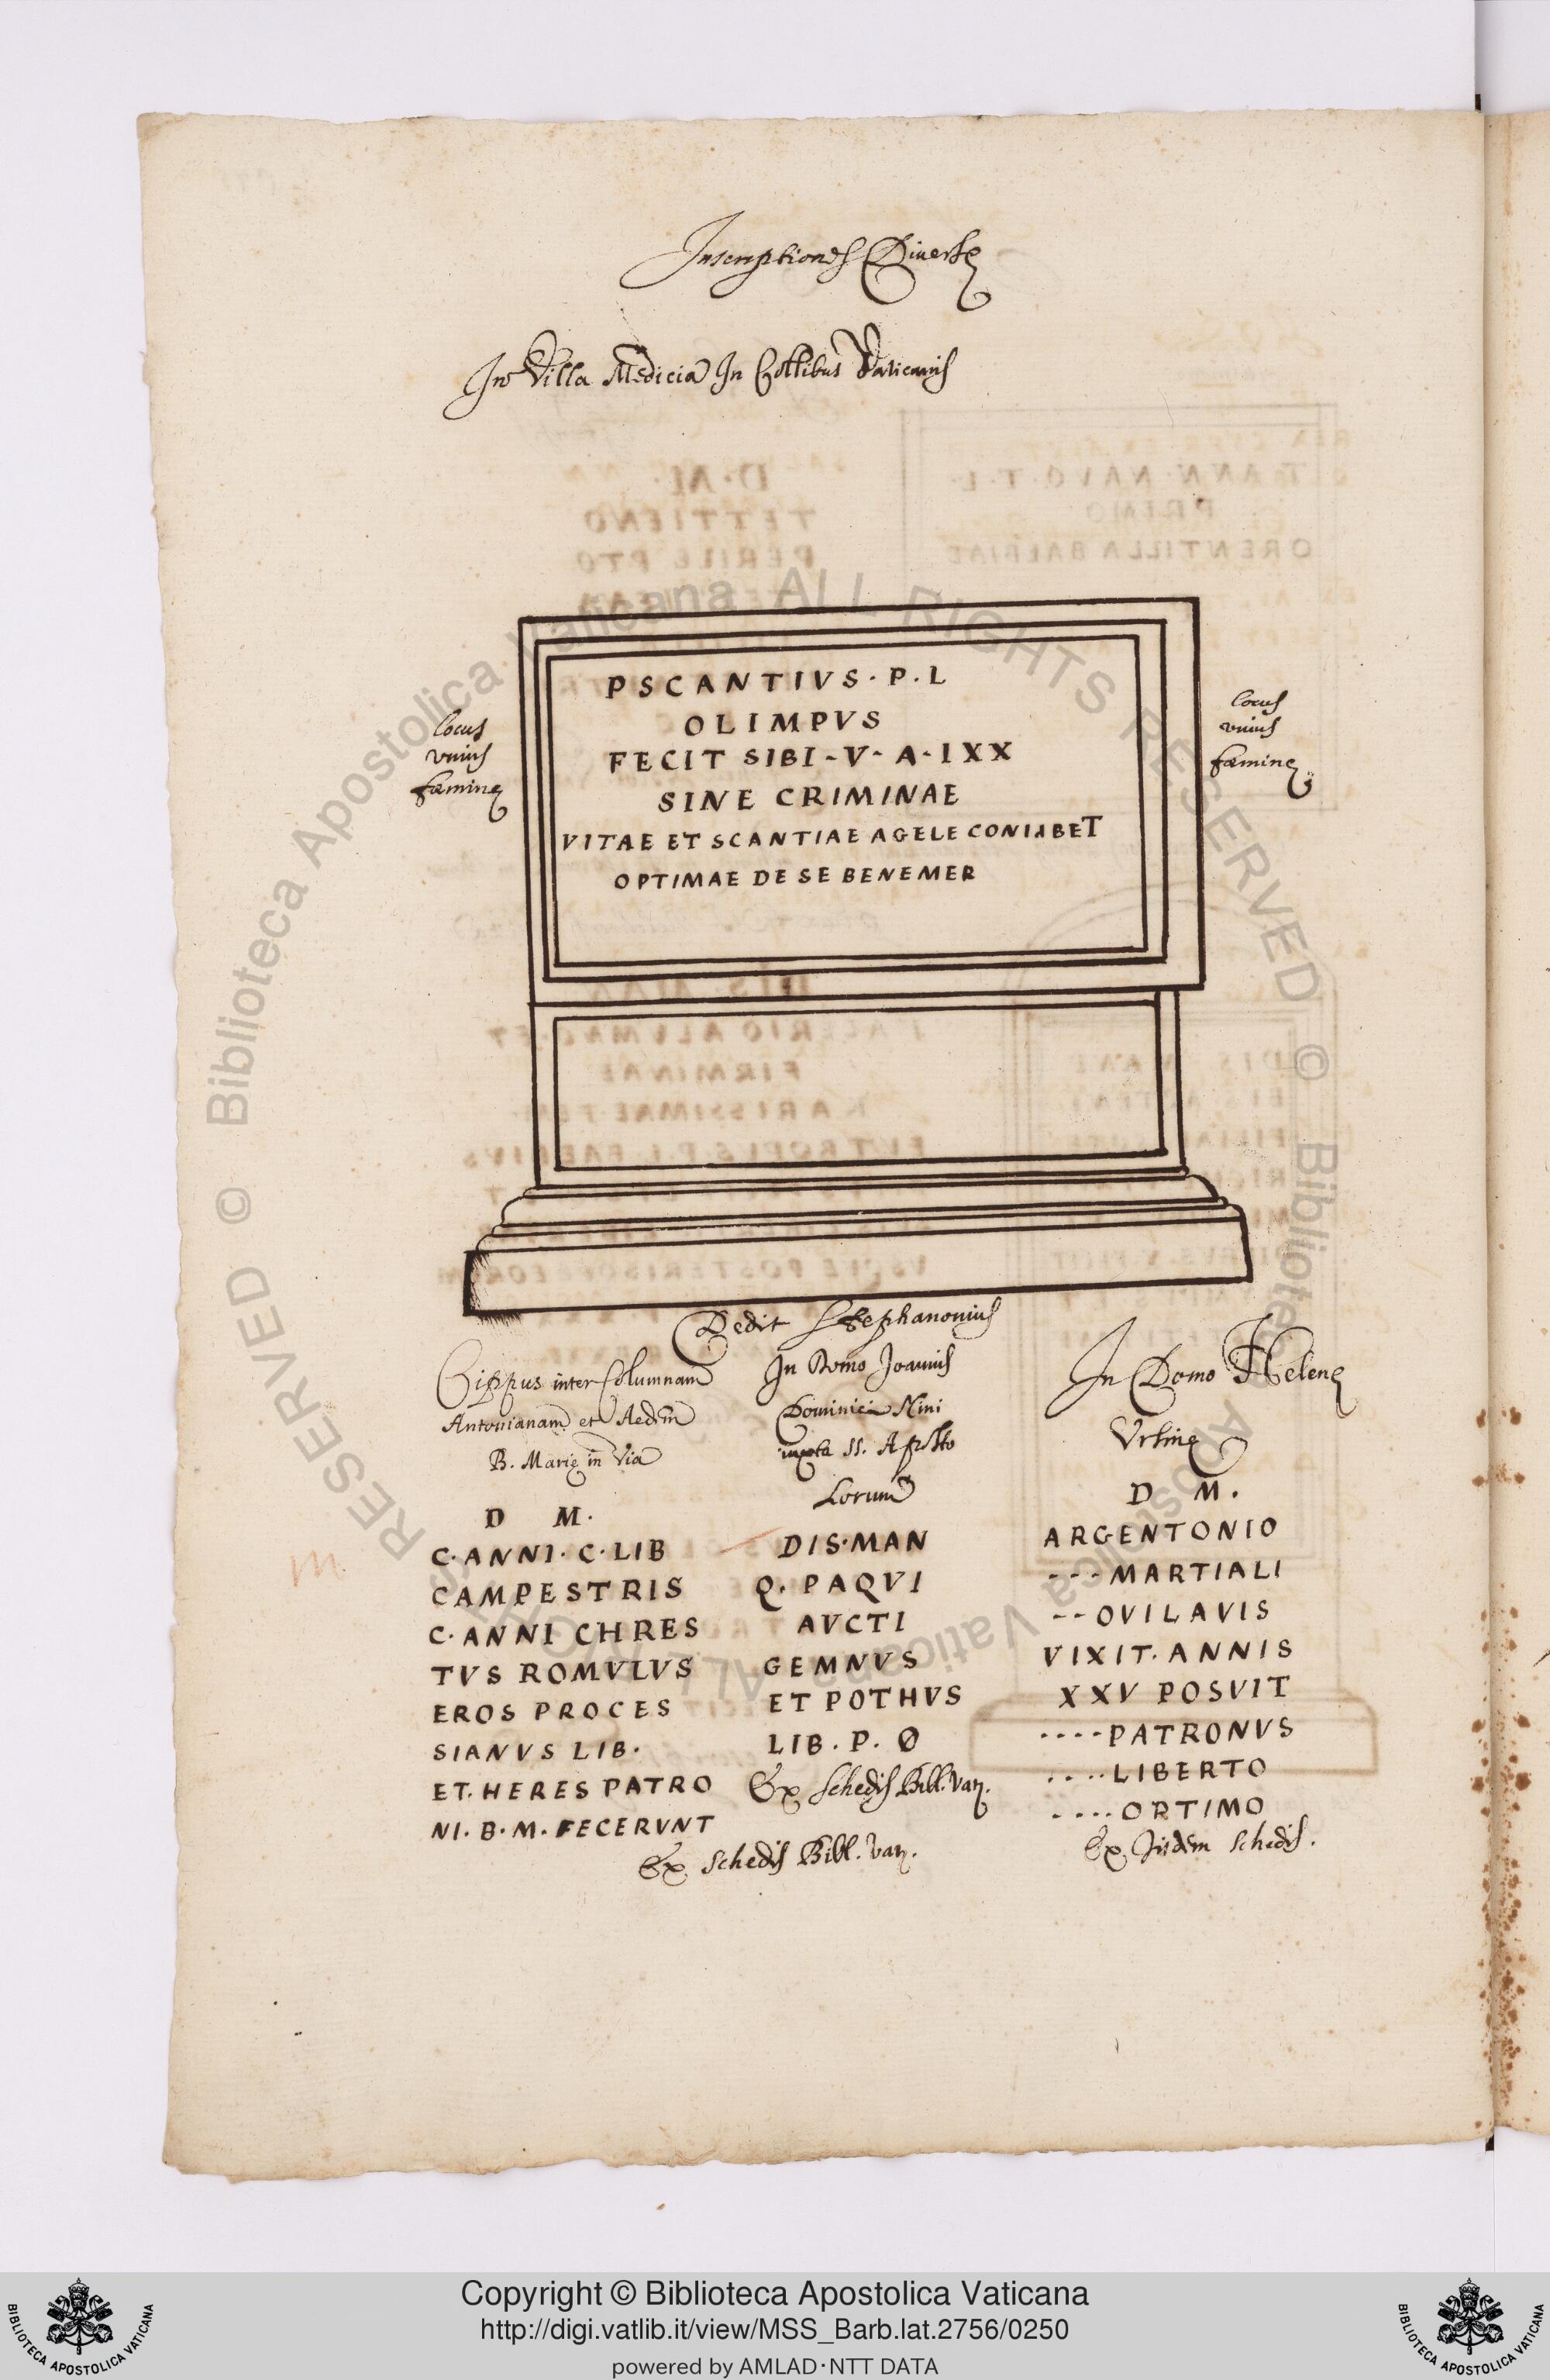 Inscriptiones Diverse
In Villa Medicia In Collibus Vaticanis
locus
unius
fœminę
PSCANTIVS · P · L
OLIMPVS
FECIT SIBI - V - A - IXX
SINE CRIMINAE
VITAE ET SCANTIAE AGELE CONIABET
OPTIMAE DE SE BENEMER
locus
unius
fœminę
Dedit Stephanonius
Cippus inter Columnam
Antonianam et Aedem
B. Marię in Via
D M.
C · ANNI · C · LIB
CAMPESTRIS
C · ANNI CHRES
TVS ROMVLVS
EROS PROCES
SIANVS LIB.
ET. HERES PATRO
NI. B. M. FECERVNT
Ex schedis Bibl. Vat.
In Domo Joannis
Dominici Nini
iuxta SS. Aposto
Lorum
DIS · MAN
Q. PAQVI
AVCTI
GEMNVS
ET POTHVS
LIB. P. Ø
Ex schedis Bibl. Vat.
In Domo Helenę
Ursinę
D M.
ARGENTONIO
--- MARTIALI
-- OVILAVIS
VIXIT. ANNIS
XXV POSVIT
---- PATRONVS
.... LIBERTO
.... ORTIMO
Ex Iisdem schedis.
m
RESERVED © Biblioteca Apostolica Vaticana ALL RIGHTS RESERVED © Biblioteca Apostolica Vaticana ALL RIGHTS
BIBLIOTECA APOSTOLICA VATICANA
Copyright © Biblioteca Apostolica Vaticana
http://digi.vatlib.it/view/MSS_Barb.lat.2756/0250
powered by AMLAD·NTT DATA
BIBLIOTECA APOSTOLICA VATICANA